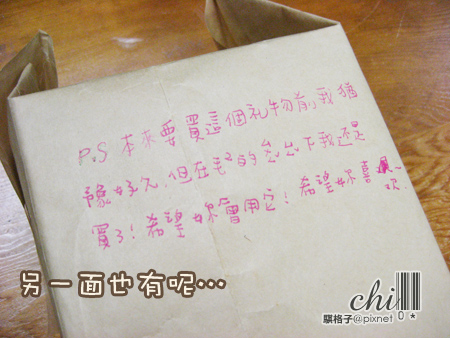 P.S 本來要買這個礼物前,我猶
豫好久,但在毛²的慫恿下我還是
買了!希望妳會用它!希望妳喜
歡~
另一面也有呢…
chi
騏格子@pixnet